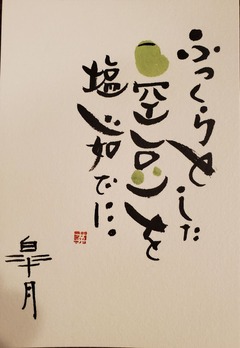 ふっくらとした
空豆を
塩茹でに…
皐月